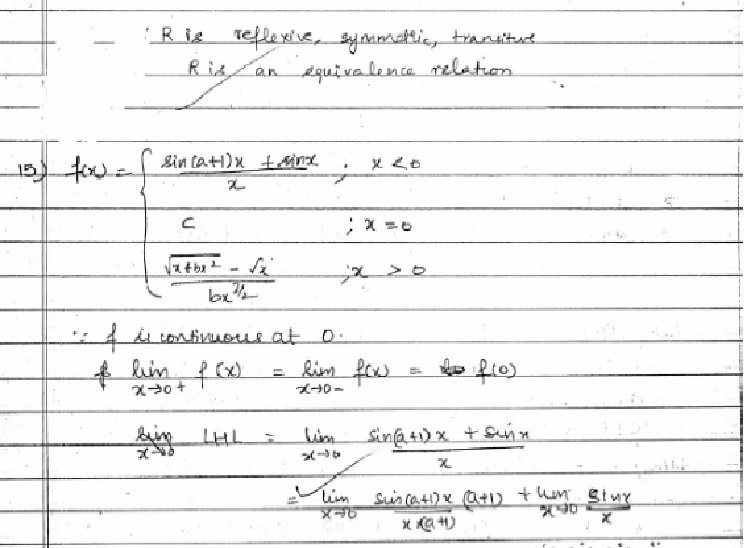 ∴ R is reflexive, symmetric, transitive
R is an equivalence relation
15) f(x) = { (sin(a+1)x + sinx)/x ; x < 0
c ; x = 0
(√(x+bx²) - √x)/(bx^(3/2)) ; x > 0
∵ f is continuous at 0.
lim x→0+ f(x) = lim x→0- f(x) = f(0)
lim x→0 LHL = lim x→0 (sin(a+1)x + sinx)/x
= lim x→0 (sin(a+1)x (a+1))/(x×(a+1)) + lim x→0 sinx/x